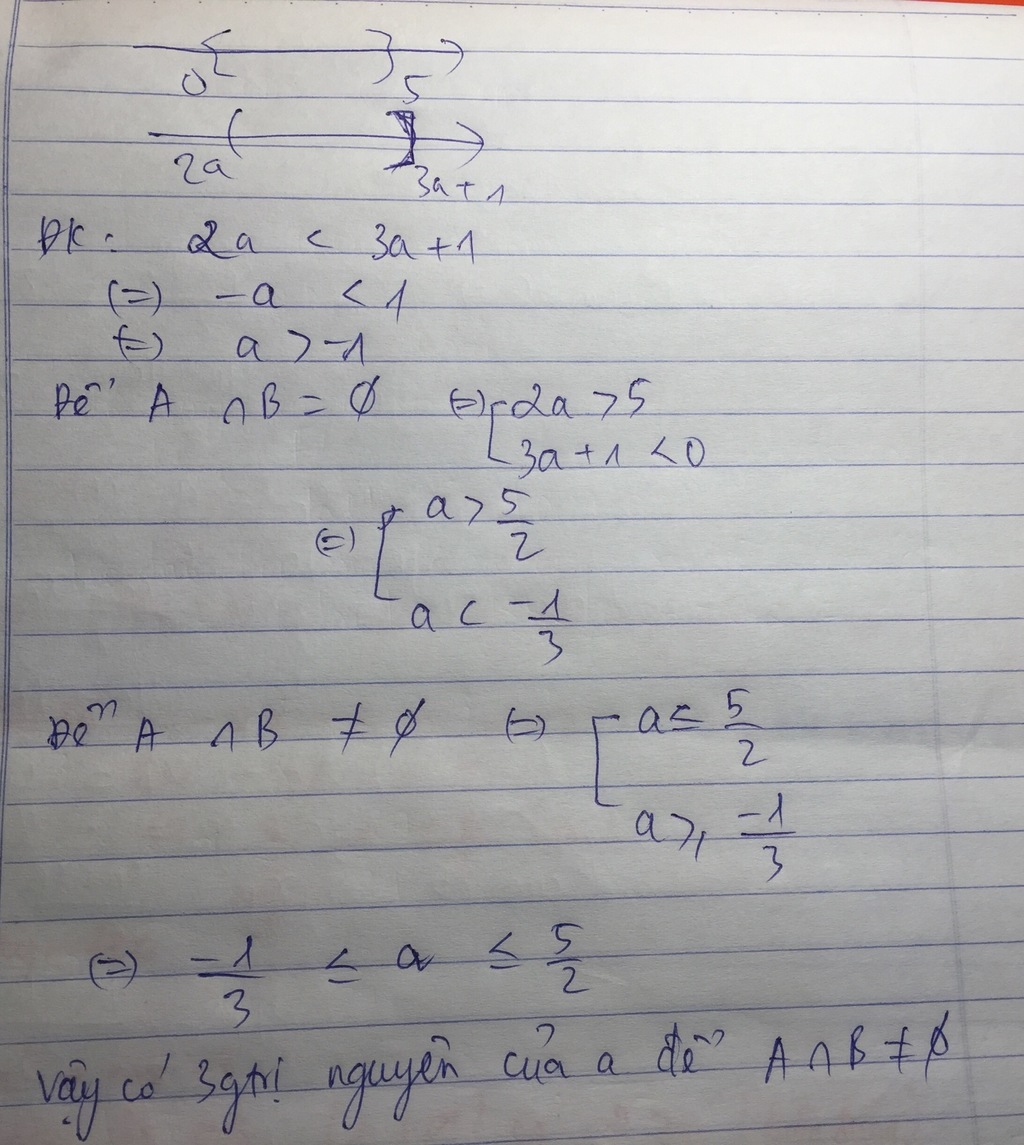 0 5
2a 3a+1
ĐK: 2a < 3a+1
(=) -a < 1
(=) a > -1
Để A ∩ B = ∅ (=) [ 2a > 5
3a+1 < 0
(=) [ a > 5/2
a < -1/3
Để A ∩ B ≠ ∅ (=) [ a ≤ 5/2
a ≥ -1/3
(=) -1/3 ≤ a ≤ 5/2
Vậy có 3 gtrị nguyên của a để A ∩ B ≠ ∅